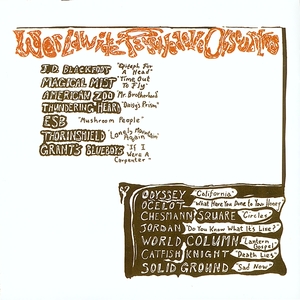 Worldwide Psychedelic Obscurities
J.D. BLACKFOOT "Epitaph For A Head"
MAGICAL MIST "Time Out To Fly"
AMERICAN ZOO "Mr. Brotherhood"
THUNDERING HEARD "Daisy's Prism"
ESB "Mushroom People"
THORINSHIELD "Lonely Mountain Again"
GRANT'S BLUEBOYS "If I Were A Carpenter"
ODYSSEY "California"
OCELOT "What Have You Done To You Honey"
CHESMANN SQUARE "Circles"
JORDAN "Do You Know What It's Like?"
WORLD COLUMN "Lantern Gospel"
CATFISH KNIGHT "Death Lies"
SOLID GROUND "Sad Now"